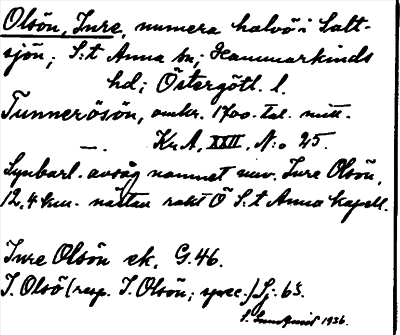 Olsön, Inre, numera halvö i Salt-
sjön; S:t Anna sn; Hammarkinds
hd; Östergötl. l.
Tunnerösön, omkr. 1700-tal. mitt.
—. Kr. A, XXII, N:o 25.
Synbarl. avsåg namnet nuv. Inre Olsön,
12,4 km. nästan rakt Ö S:t Anna kapell.
Inre Olsön ek. G.46.
I. Olsö (resp. I. Olsön; spec.) Sj. 63.
1936.